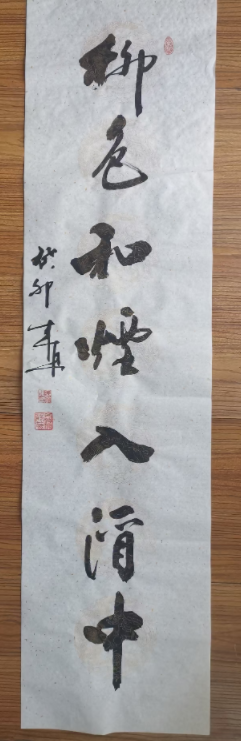 柳色和煙入酒中
癸卯